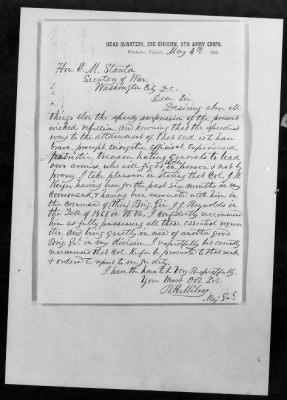 HEAD QUARTERS, 2ND DIVISION, 8TH ARMY CORPS.
Winchester, Virginia, May 4th 1863
Hon E. M. Stanton
Secretary of War
Washington City D.C.
Dear Sir
Desiring above all
things else the speedy suppression of the present
wicked rebellion and knowing that the speediest
way to the attainment of that end is to have
brave, prompt, energetic, efficient, experienced
patriotic, treason hating Generals to lead
our armies, who will fight in person & not by
proxy. I take pleasure in stating that Col. J. W.
Keifer, having been for the past six months in my
command, & having been associated with him in
the command of then Brig. Gen. J J Reynolds in
the Fall of 1861 in W. Va. I confidently recommend
him as fully possessing all these essential requis-
ites, and being greatly in need of another good
Brig. Gen. in my division. I respectfully but earnestly
recommend that Col. Keifer be promoted to that rank
& ordered to report to me for duty.
I have the honor to be Very Respectfully
Your Most Obt Svt.
R H Milroy
Maj. Genl.